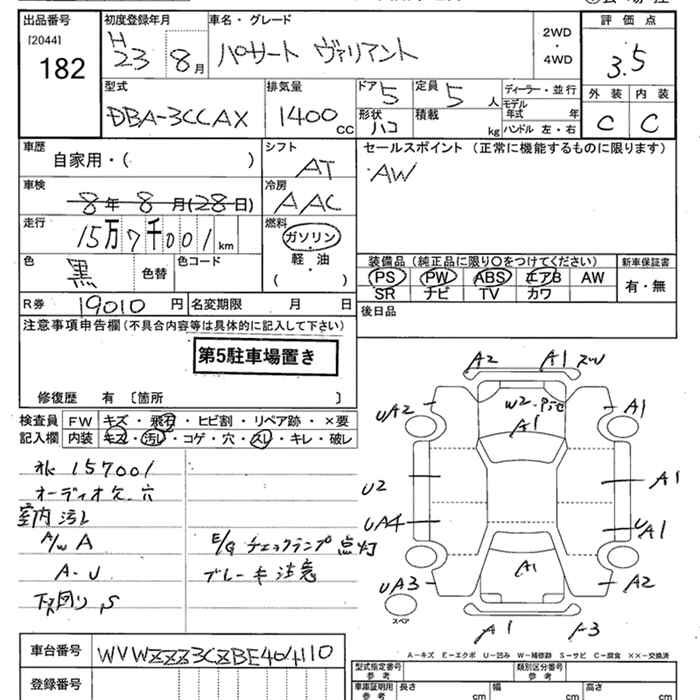 出品番号
[2044]
182
初度登録年月
H
23 8月
車名・グレード
パサート ヴァリアント
2WD
・
4WD
評価点
3.5
型式
DBA-3CCAX
排気量
1400 CC
ドア 5
形状 ハコ
定員 5 人
積載 kg
ディーラー・並行
モデル
年式 年
ハンドル 左・右
外装 内装
C C
車歴
自家用・( )
シフト
AT
セールスポイント (正常に機能するものに限ります)
AW
車検
8年 8月(28日)
冷房
AAC
走行
15万7千001km
燃料
ガソリン
・
軽油
・
( )
色 黒 色替
色コード
装備品 (純正品に限り○をつけてください)
PS PW ABS エアB AW
SR ナビ TV カワ
新車保証書
有・無
R券 19010円
名変期限 月 日
後日品
注意事項申告欄(不具合内容等は具体的に記入して下さい)
第5駐車場置き
修復歴 有 〔箇所 〕
検査員
記入欄
FW キズ・飛石・ヒビ割・リペア跡・×要
内装 キズ・汚レ・コゲ・穴・スレ・キレ・破レ
157001
オーディオ欠.穴
室内汚レ
A/W A
A-U
下回り,S
E/G チェックランプ点灯
ブレーキ注意
A2 A1
W2
A1
UA2 A1
U2 A1
UA4 UA1
A1
UA3 A2
スペア
A1
A-キズ E-エクボ U-凹み W-補修跡 S-サビ C-腐食 ××-交換済
車台番号
登録番号
型式指定番号
参考
類別区分番号
参考
車庫証明用
参考
長さ cm
幅 cm
高さ cm